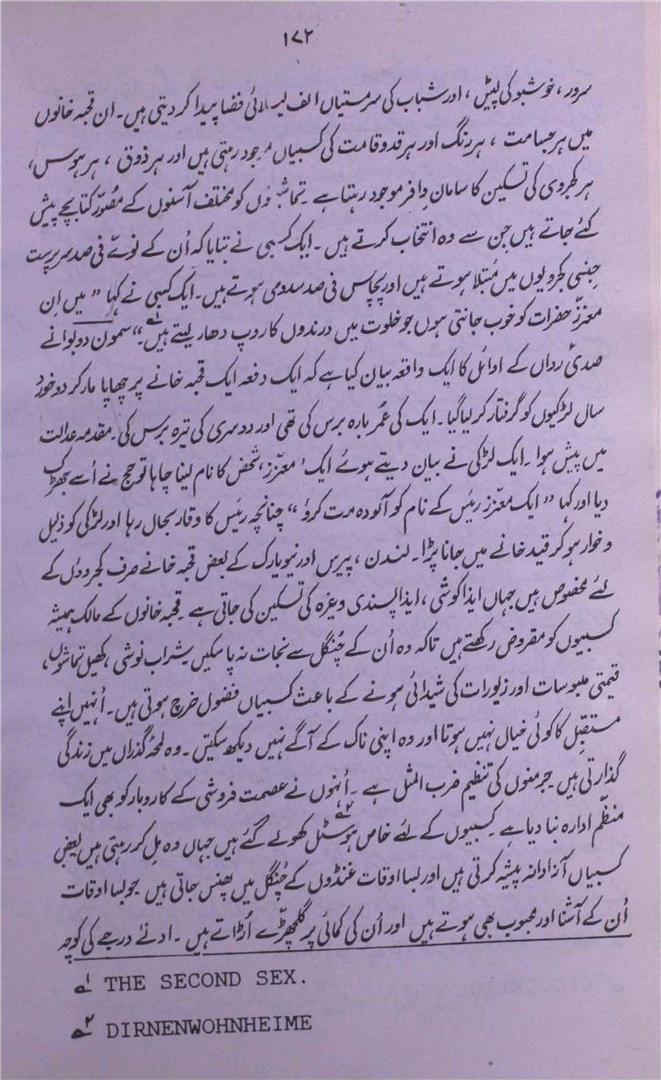 ۱۷۲
سرور، خوشبو کی لپٹیں، اور شباب کی سرمستیاں الف لیلائی فضا پیدا کر دیتی ہیں۔ ان قحبہ خانوں
میں ہر جسامت، ہر رنگ اور ہر قد و قامت کی کسبیاں موجود رہتی ہیں اور ہر ذوق، ہر ہوس،
ہر کجروی کی تسکین کا سامان وافر موجود رہتا ہے۔ تماش بینوں کو مختلف آسنوں کے مصّور کتابچے پیش
کئے جاتے ہیں جن سے وہ انتخاب کرتے ہیں۔ ایک کسبی نے بتایا کہ اُن کے نوّے فی صد سرپرست
جنسی کجرویوں میں مُبتلا ہوتے ہیں اور پچاس فی صد سدومی ہوتے ہیں۔ ایک کسبی نے کہا ” میں اِن
معزز حضرات کو خوب جانتی ہوں جو خلوت میں درندوں کا روپ دھار لیتے ہیں۔“ سمون دوبوا نے
صدیٔ رواں کے اوائل کا ایک واقعہ بیان کیا ہے کہ ایک دفعہ ایک قحبہ خانے پر چھاپا مار کر دو خورد
سال لڑکیوں کو گرفتار کر لیا گیا۔ ایک کی عُمر بارہ برس کی تھی اور دوسری کی تیرہ برس کی۔ مقدمہ عدالت
میں پیش ہوا۔ ایک لڑکی نے بیان دیتے ہوئے ایک ’معزّز‘ شخص کا نام لینا چاہا تو جج نے اُسے جھڑک
دیا اور کہا ” ایک معزّز رئیس کے نام کو آلودہ مت کرو“ چنانچہ رئیس کا وقار بحال رہا اور لڑکی کو ذلیل
و خوار ہو کر قید خانے میں جانا پڑا۔ لندن، پیرس اور نیویارک کے بعض قحبہ خانے صرف کجروؤں کے
لئے مخصوص ہیں جہاں ایذا کوشی، ایذا پسندی وغیرہ کی تسکین کی جاتی ہے۔ قحبہ خانوں کے مالک ہمیشہ
کسبیوں کو مقروض رکھتے ہیں تاکہ وہ اُن کے چُنگل سے نجات نہ پا سکیں۔ شراب نوشی، کھیل تماشوں،
قیمتی ملبوسات اور زیورات کی شیدائی ہونے کے باعث کسبیاں فضول خرچ ہوتی ہیں۔ اُنہیں اپنے
مستقبل کا کوئی خیال نہیں ہوتا اور وہ اپنی ناک کے آگے نہیں دیکھ سکتیں۔ وہ لمحۂ گذراں میں زندگی
گذارتی ہیں۔ جرمنوں کی تنظیم ضرب المثل ہے۔ اُنہوں نے عصمت فروشی کے کاروبار کو بھی ایک
منظّم ادارہ بنا دیا ہے۔ کسبیوں کے لئے خاص ہوسٹل۲ کھولے گئے ہیں جہاں وہ مل کر رہتی ہیں بعض
کسبیاں آزادانہ پیشہ کرتی ہیں اور بسا اوقات غنڈوں کے چُنگل میں پھنس جاتی ہیں جو بسا اوقات
اُن کے آشنا اور محبوب بھی ہوتے ہیں اور اُن کی کمائی پر گلچھڑے اُڑاتے ہیں۔ ادنےٰ درجے کی کوچہ
۱ THE SECOND SEX.
۲ DIRNENWOHNHEIME